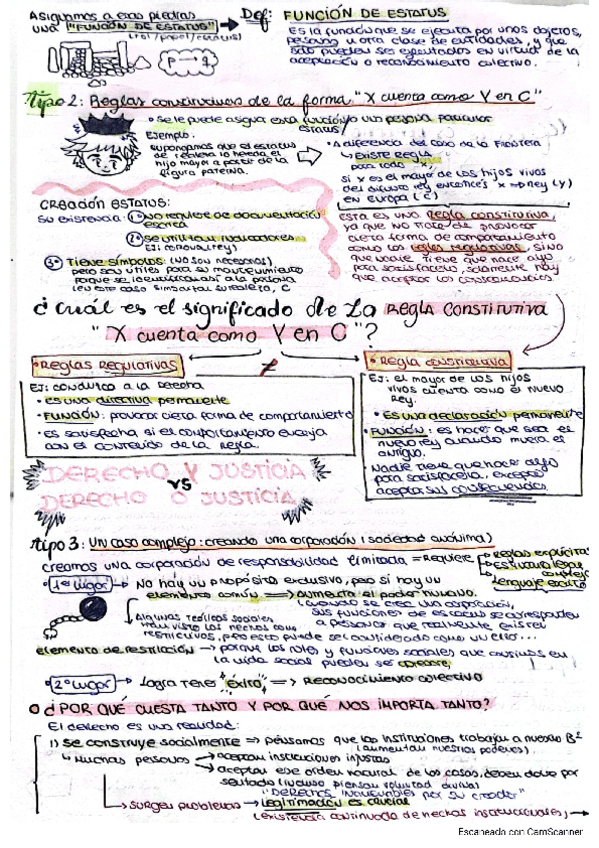 Asignamos a esas piedras
una "FUNCIÓN DE ESTATUS"
(rol/papel/estatus)
Def: FUNCIÓN DE ESTATUS
Es la función que se ejecuta por unos objetos,
persona u otra clase de entidades, y que
solo pueden ser ejecutados en virtud de la
aceptación o reconocimiento colectivo.
p → q
Tipo 2: Reglas constitutivas de la forma "X cuenta como Y en C"
• Se le puede asigna esta función/o una persona particular
estatus/
Ejemplo:
supongamos que el estatus
de realeza lo hereda el
hijo mayor a partir de la
figura paterna.
• A diferencia del caso de la frontera
↳ EXISTE REGLA
para todo x,
si x es el mayor de los hijos vivos
del difunto rey entonces x ⇒ rey (Y)
en Europa (C)
CREACIÓN ESTATUS:
Su existencia: 1º no requiere de documentación
escrita
2º se utilizan indicadores
Ej: corona (rey)
3º Tiene símbolos (NO son necesarios)
pero son útiles para su mantenimiento
porque se
(en este caso simbolizar su realeza, C
Esta es una regla constitutiva,
ya que no trata de provocar
cierta forma de comportamiento
como las reglas regulativas, sino
que nadie tiene que hacer algo
para satisfacerla, solamente hay
que aceptar las consecuencias
¿Cuál es el significado de la REGLA CONSTITUTIVA
"X cuenta como Y en C"?
• REGLAS REGULATIVAS
≠
• REGLA CONSTITUTIVA
Ej: conduzca a la derecha
• es una directiva permanente
• FUNCIÓN: provocar cierta forma de comportamiento
• es satisfecha si el comportamiento encaja
con el contenido de la regla.
Ej: el mayor de los hijos
vivos cuenta como el nuevo
rey.
• Es una declaración permanente
• FUNCIÓN: es hacer que sea el
nuevo rey cuando muera el
antiguo.
Nadie tiene que hacer algo
para satisfacerla, excepto
aceptar sus consecuencias.
DERECHO Y JUSTICIA
VS
DERECHO O JUSTICIA
Tipo 3: Un caso complejo: creando una corporación (sociedad anónima)
Creamos una corporación de responsabilidad limitada = Requiere
Reglas explícitas
Estructura legal compleja
Lenguaje escrito
• 1er lugar → No hay un propósito exclusivo, pero si hay un
elemento común ⇒ aumenta el poder humano.
(cuando se crea una corporación,
sus funciones de estatus se corresponden
a personas que realmente existen
↳ Algunas teóricos sociales
han visto los hechos como
restrictivos, pero esto puede ser considerado como un error...
elemento de restricción → porque los roles y funciones sociales que existen en
la vida social pueden ser opresores
• 2º lugar → logra tener éxito ⇒ Reconocimiento colectivo
¿POR QUÉ CUESTA TANTO Y POR QUÉ NOS IMPORTA TANTO?
El derecho es una realidad:
1) se construye socialmente → pensamos que las instituciones trabajan a nuestro Bº
(aumentan nuestros poderes).
↳ Muchas personas → aceptan instituciones injustas
→ aceptan ese orden natural de las cosas, deben darlo por
sentado (incluso piensan voluntad divina)
"DERECHOS INALIENABLES por su creador"
↳ Surgen problemas → legitimación es crucial
(existencia continuada de hechos institucionales) →
Escaneado con CamScanner